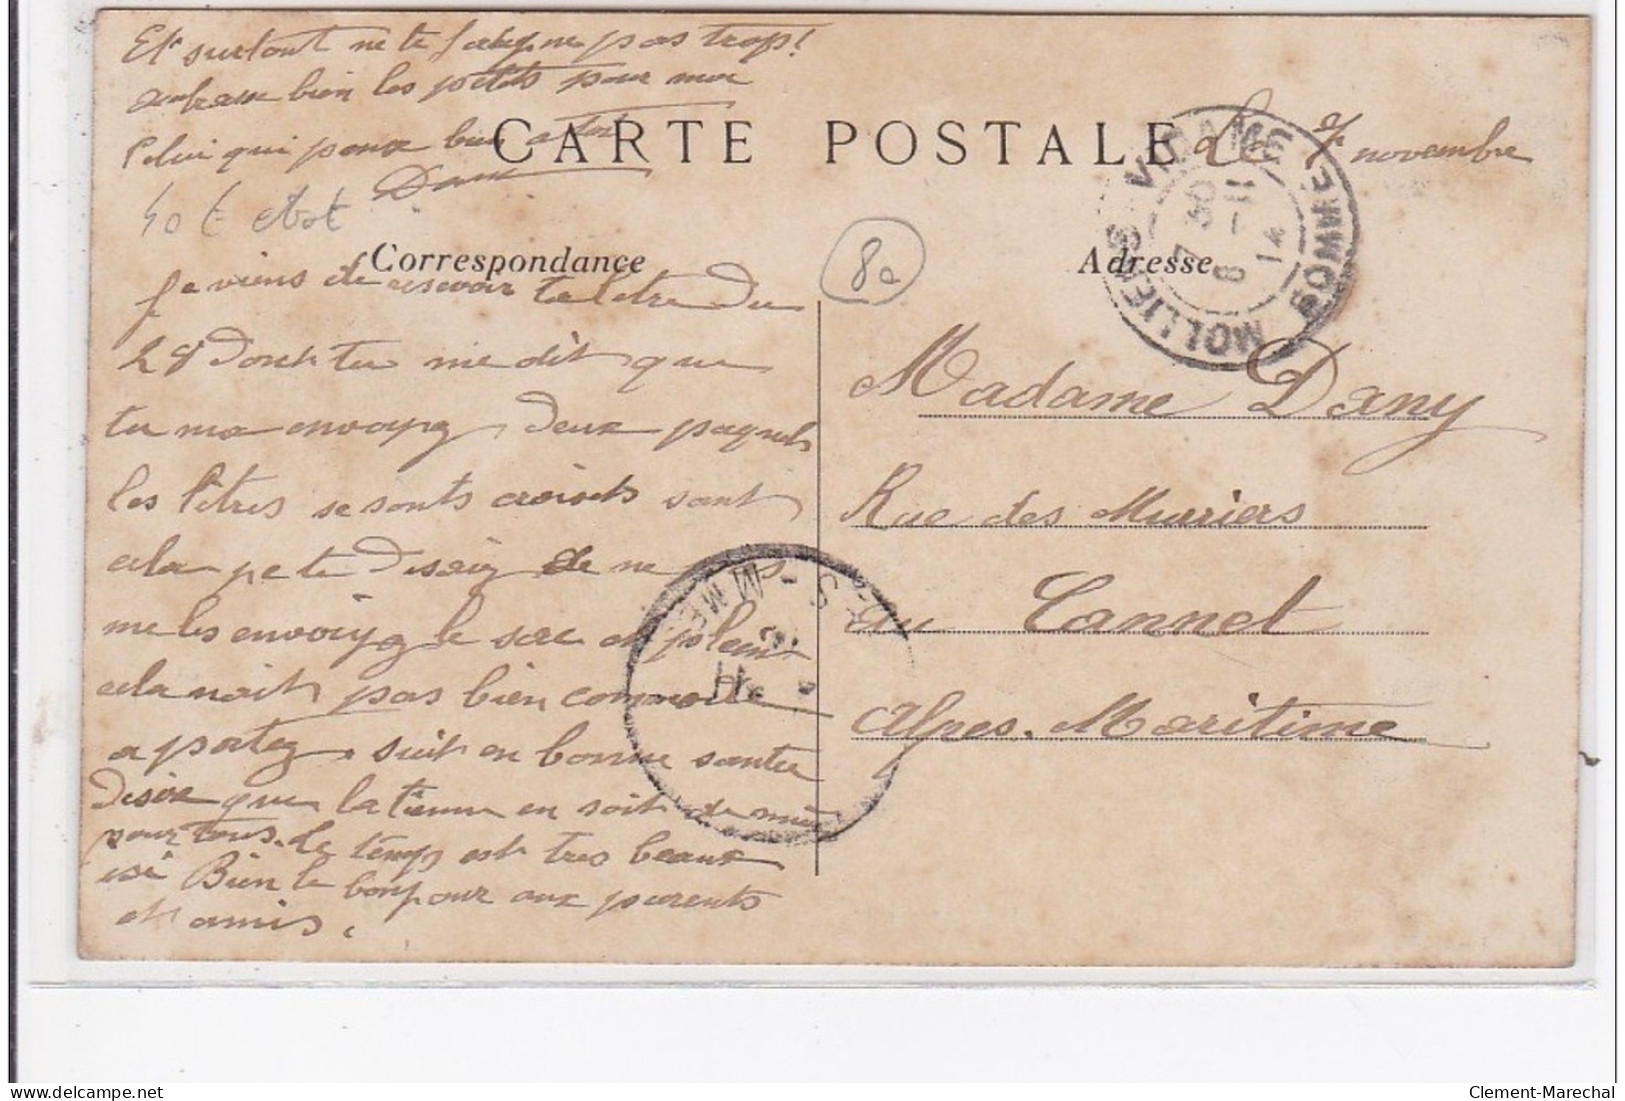 Et surtout ne te fatigue pas trop!
embrasse bien les petits pour moi
Celui qui pense bien a toi
Dany
40 t etat
CARTE POSTALE
Le 7 novembre
MOLLIENS-VIDAME
SOMME
7 30
8 - 11
14
80
Correspondance
Adresse
Je viens de resevoir ta letre du
28 Dont tu me dit que
tu ma envoyez deux paquets
les lètres se sonts croisets sant
cela je te disaiz de ne pas
me les envoiyez le sac et plein
cela nait pas bien commode
a portez, suit en bonne santee
Desire que la tienne en soit de même
pour tous. le temps est tres beaux
isi Bien le bonjour aux parents
et amis.
Madame Dany
Rue des Muriers
au Cannet
Alpes. Maritime
Clement-Marechal